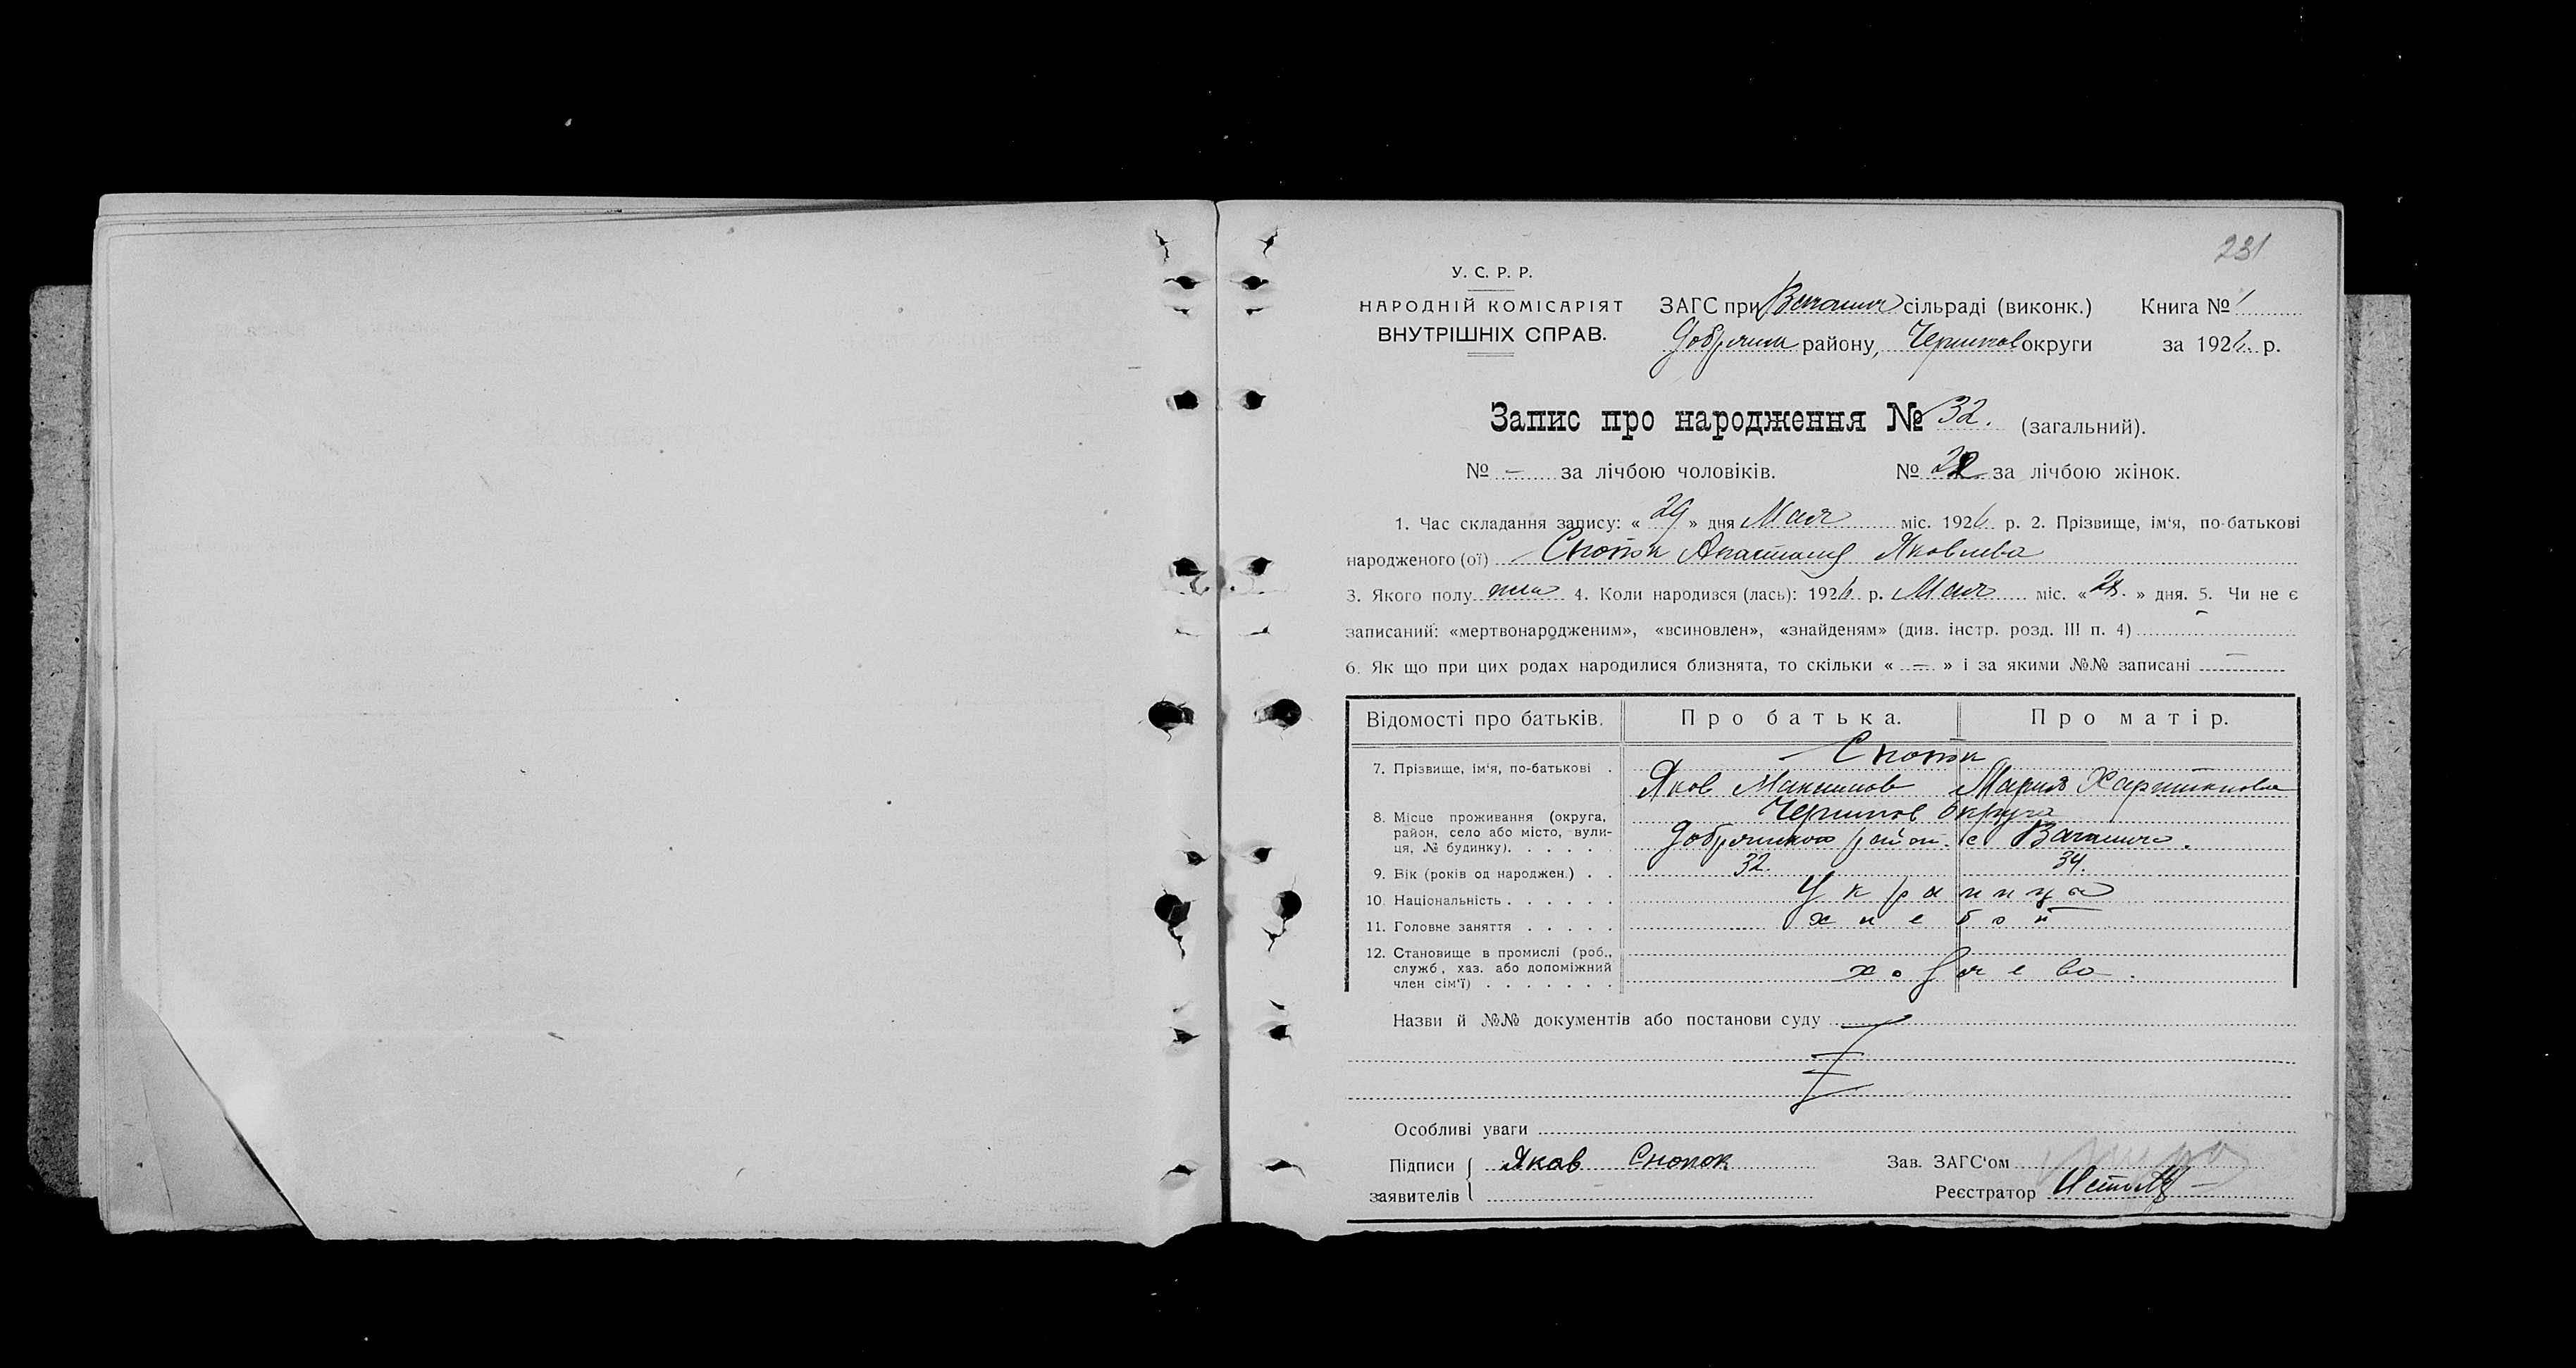 231
У. С. Р. Р.
НАРОДНІЙ КОМІСАРІЯТ
ВНУТРІШНІХ СПРАВ.
ЗАГС при сільраді (виконк.) Книга № 1
району, округи за 1926. р.
Запис про народження № 32. (загальний).
№ — за лічбою чоловіків. № 22 за лічбою жінок.
1. Час складання запису: « 29 » дня Мая міс. 1926 р. 2. Прізвище, ім'я, по-батькові
народженого (ої) Снопок Анастасия Яковлева
3. Якого полу жен 4. Коли народився (лась): 1926 р. Мая міс. « » дня. 5. Чи не є
записаний: «мертвонародженим», «всиновлен», «знайденям» (див. інстр. розд. III п. 4) —
6. Як що при цих родах народилися близнята, то скільки « — » і за якими №№ записані —
Відомості про батьків. Про батька. Про матір.
7. Прізвище, ім'я, по-батькові . Снопок
Яков Максимов Мария
8. Місце проживання (округа, район, село або місто, вулиця, № будинку). . . . . Чернигов округа
район. с
9. Вік (років од народжен.) . . 32. 34.
10. Національність . . . . . . Украинца
11. Головне заняття . . . . . хлебоп
12. Становище в промислі (роб., служб, хаз. або допоміжний член сім'ї) . . . . . . .
Назви й №№ документів або постанови суду
Особливі уваги
Підписи заявителів Яков Снопок
Зав. ЗАГС'ом
Реєстратор